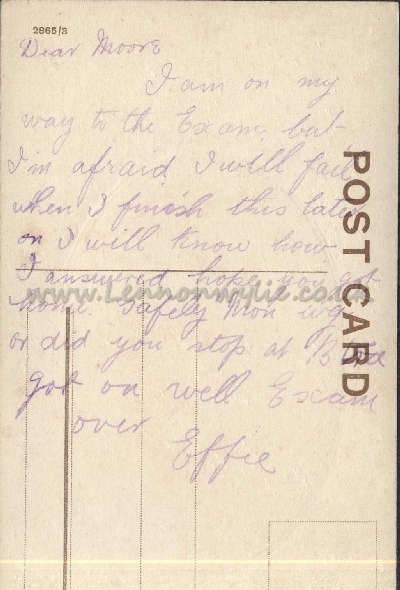 2865/3
Dear Moore
I am on my
way to the Exam, but
I'm afraid I will fail
when I finish this later
on I will know how
I answered hope you got
home safely Mon evg
or did you stop at
got on well Exam
over
Effie
POST CARD
www.Lennonwylie.co.uk